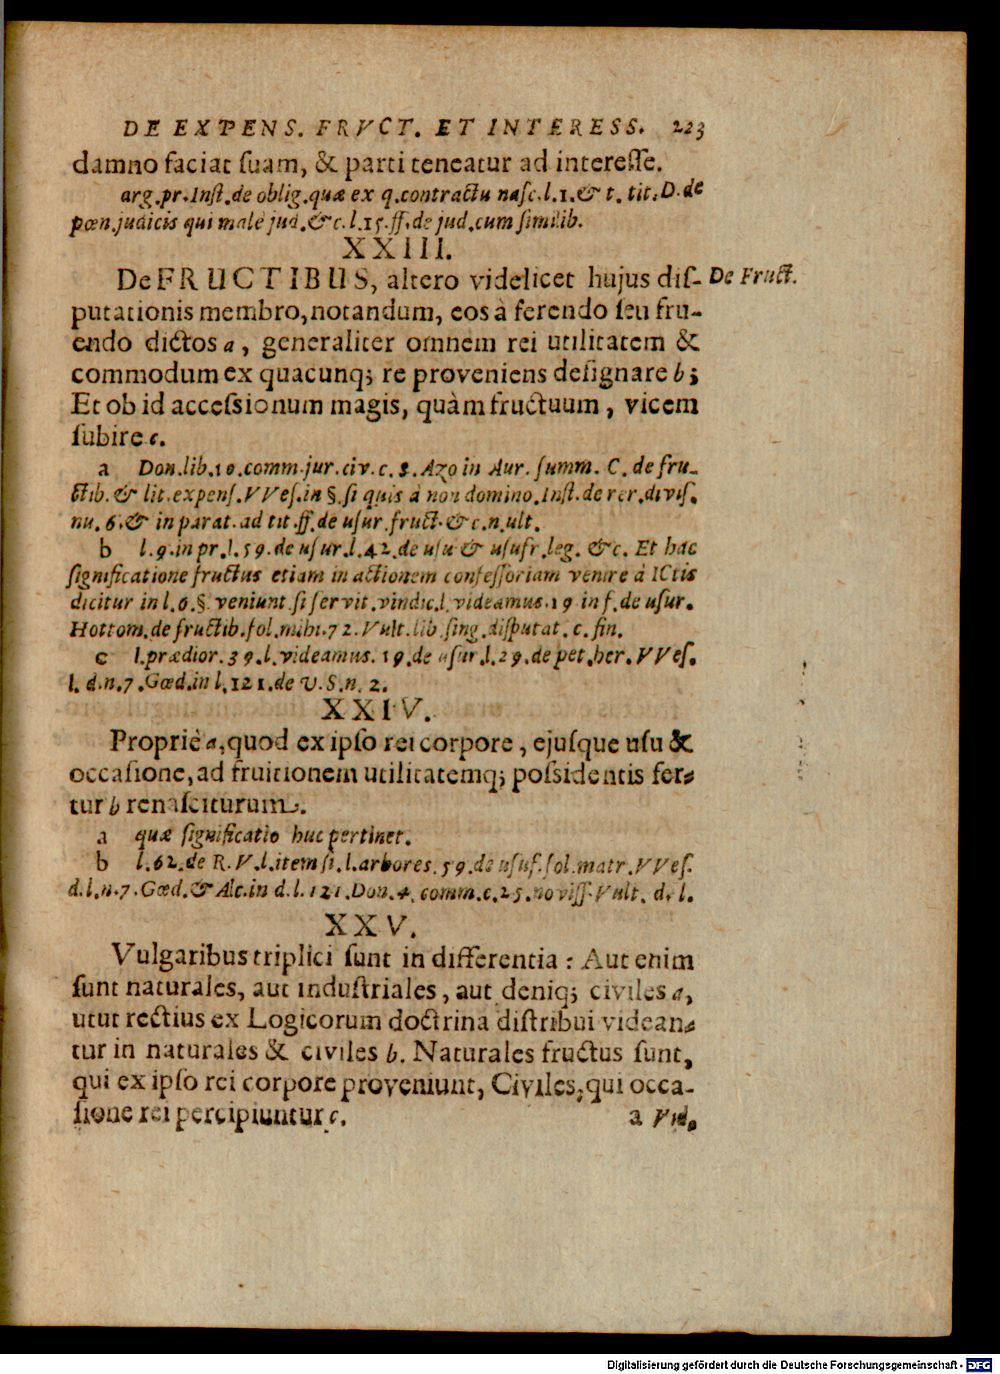 DE EXPENS. FRVCT. ET INTERESS. 223
damno faciat ſuam, & parti teneatur ad intereſſe.
arg.pr.Inſt.de oblig.quæ ex q.contractu naſc.l.1.& t. tit.D.de
pœn.judicis qui male jud.&c.l.15.ff.de jud.cum ſimilib.
XXIII.
De FRUCTIBUS, altero videlicet hujus diſ-
De Fruct.
putationis membro, notandum, eos à ferendo ſeu fru-
endo dictos a, generaliter omnem rei utilitatem &
commodum ex quacunq; re proveniens deſignare b;
Et ob id acceſsionum magis, quàm fructuum, vicem
ſubire c.
a Don.lib.10.comm.jur.civ.c.5.Azo in Aur. ſumm. C. de fru-
ctib. & lit.expenſ.VVeſ.in §.ſi quis à non domino.Inſt.de rer.diviſ.
nu. 6.& in parat.ad tit.ff.de uſur.fruct.&c.n.ult.
b l.9.in pr.l.59.de uſur.l.42.de uſu & uſufr.leg. &c. Et hac
ſignificatione fructus etiam in actionem confeſſoriam venire à ICtis
dicitur in l.6.§.veniunt.ſi ſervit.vindic.l.videamus.19 in f.de uſur.
Hottom.de fructib.fol.mihi.72.Vult.lib ſing.diſputat.c.fin.
c l.prædior.39.l.videamus.19.de uſur.l.29.de pet.her.VVeſ.
l. d.n.7.Gœd.in l.121.de V.S.n.2.
XXIV.
Propriè a, quod ex ipſo rei corpore, ejuſque uſu &
occaſione, ad fruitionem utilitatemq; poſsidentis fer-
tur b renaſciturum.
a quæ ſignificatio huc pertinet.
b l.62.de R.V.l.item ſi.l.arbores.59.de uſuf.ſol.matr.VVeſ.
d.l.n.7.Gœd.& Alc.in d.l.121.Don.4.comm.c.25.noviſſ.Vult. d. l.
XXV.
Vulgaribus triplici ſunt in differentia: Aut enim
ſunt naturales, aut induſtriales, aut deniq; civiles a,
utut rectius ex Logicorum doctrina diſtribui videan-
tur in naturales & civiles b. Naturales fructus ſunt,
qui ex ipſo rei corpore proveniunt, Civiles, qui occa-
ſione rei percipiuntur c.
a Vid.
Digitalisierung gefördert durch die Deutsche Forschungsgemeinschaft - DFG